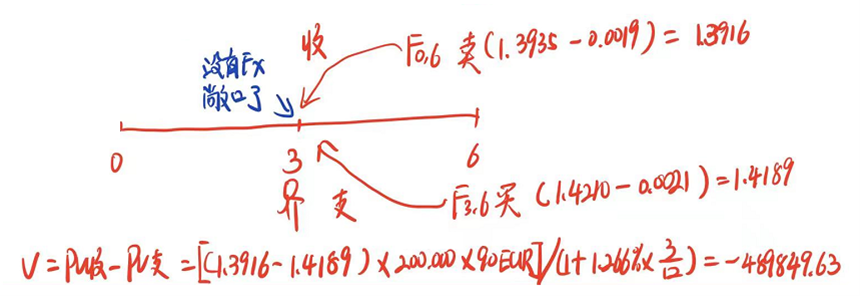 收 F0,6 卖(1.3935-0.0019)=1.3916
没有Fx
敞口了
0 3 6
支 F3,6买 (1.4210-0.0021)=1.4189
V=PV收-PV支=[(1.3916-1.4189)×200.000×90EUR]/(1+1.266%×3/12)=-489849.63